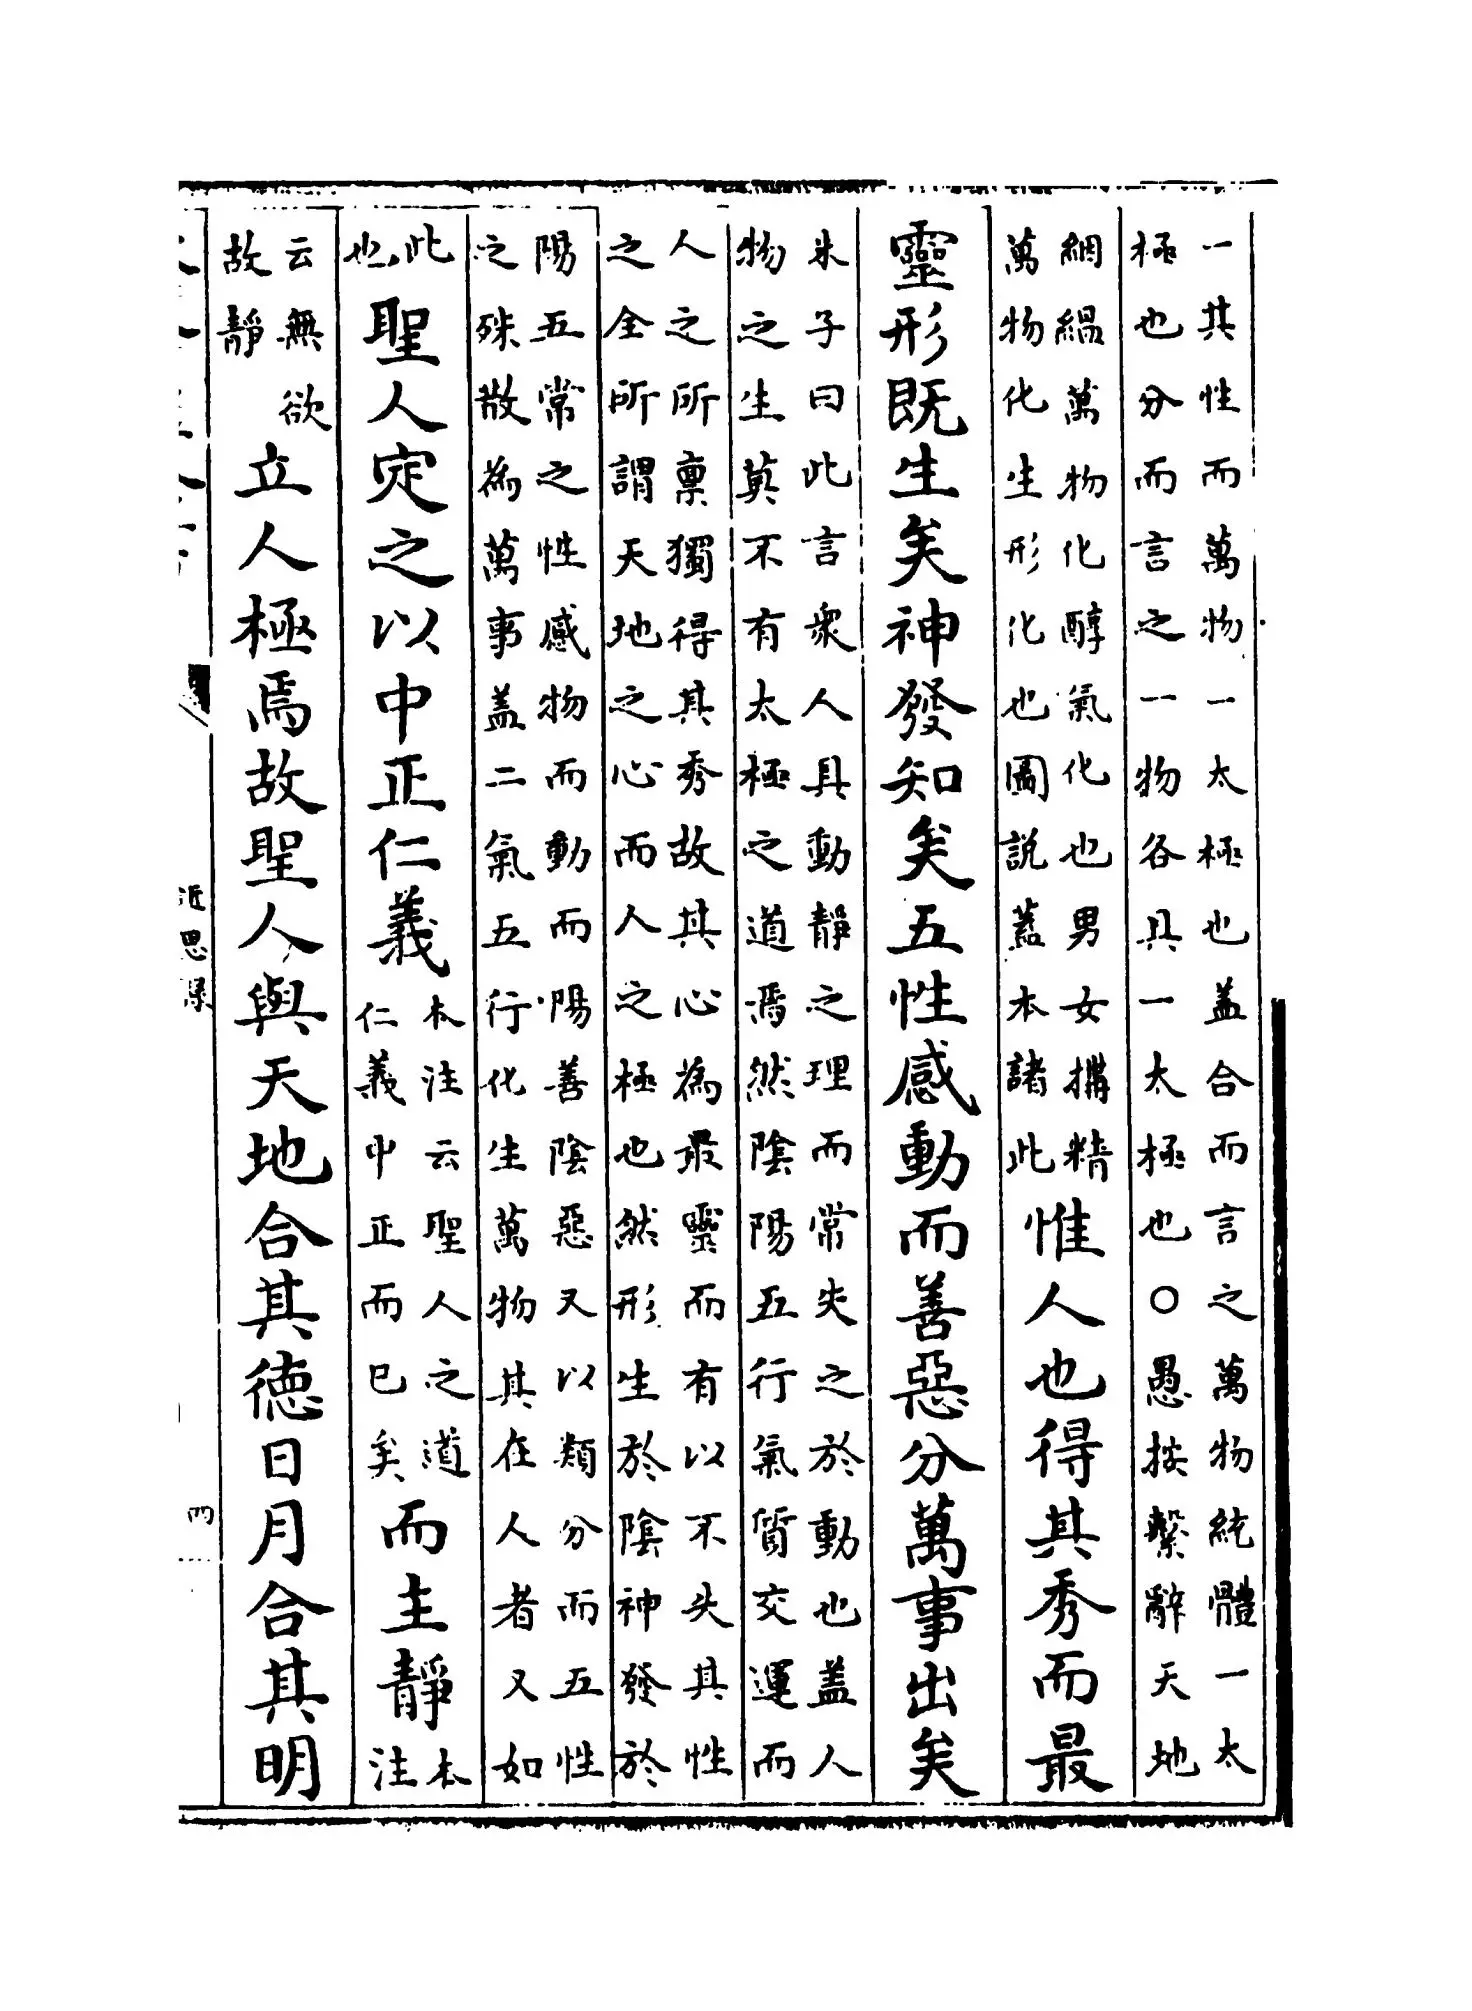 一其性而萬物一太極也盖合而言之萬物統體一太
極也分而言之一物各具一太極也○愚按繫辭天地
絪縕萬物化醇氣化也男女搆精
萬物化生形化也圖說蓋本諸此
惟人也得其秀而最
靈形既生矣神發知矣五性感動而善惡分萬事出矣
朱子曰此言衆人具動靜之理而常失之於動也盖人
物之生莫不有太極之道焉然陰陽五行氣質交運而
人之所禀獨得其秀故其心為最靈而有以不失其性
之全所謂天地之心而人之極也然形生於陰神發於
陽五常之性感物而動而陽善陰惡又以類分而五性
之殊散為萬事盖二氣五行化生萬物其在人者又如
此
也
聖人定之以中正仁義
本注云聖人之道
仁義中正而已矣
而主靜
本
注
云無欲
故靜
立人極焉故聖人與天地合其德日月合其明
近思錄
四